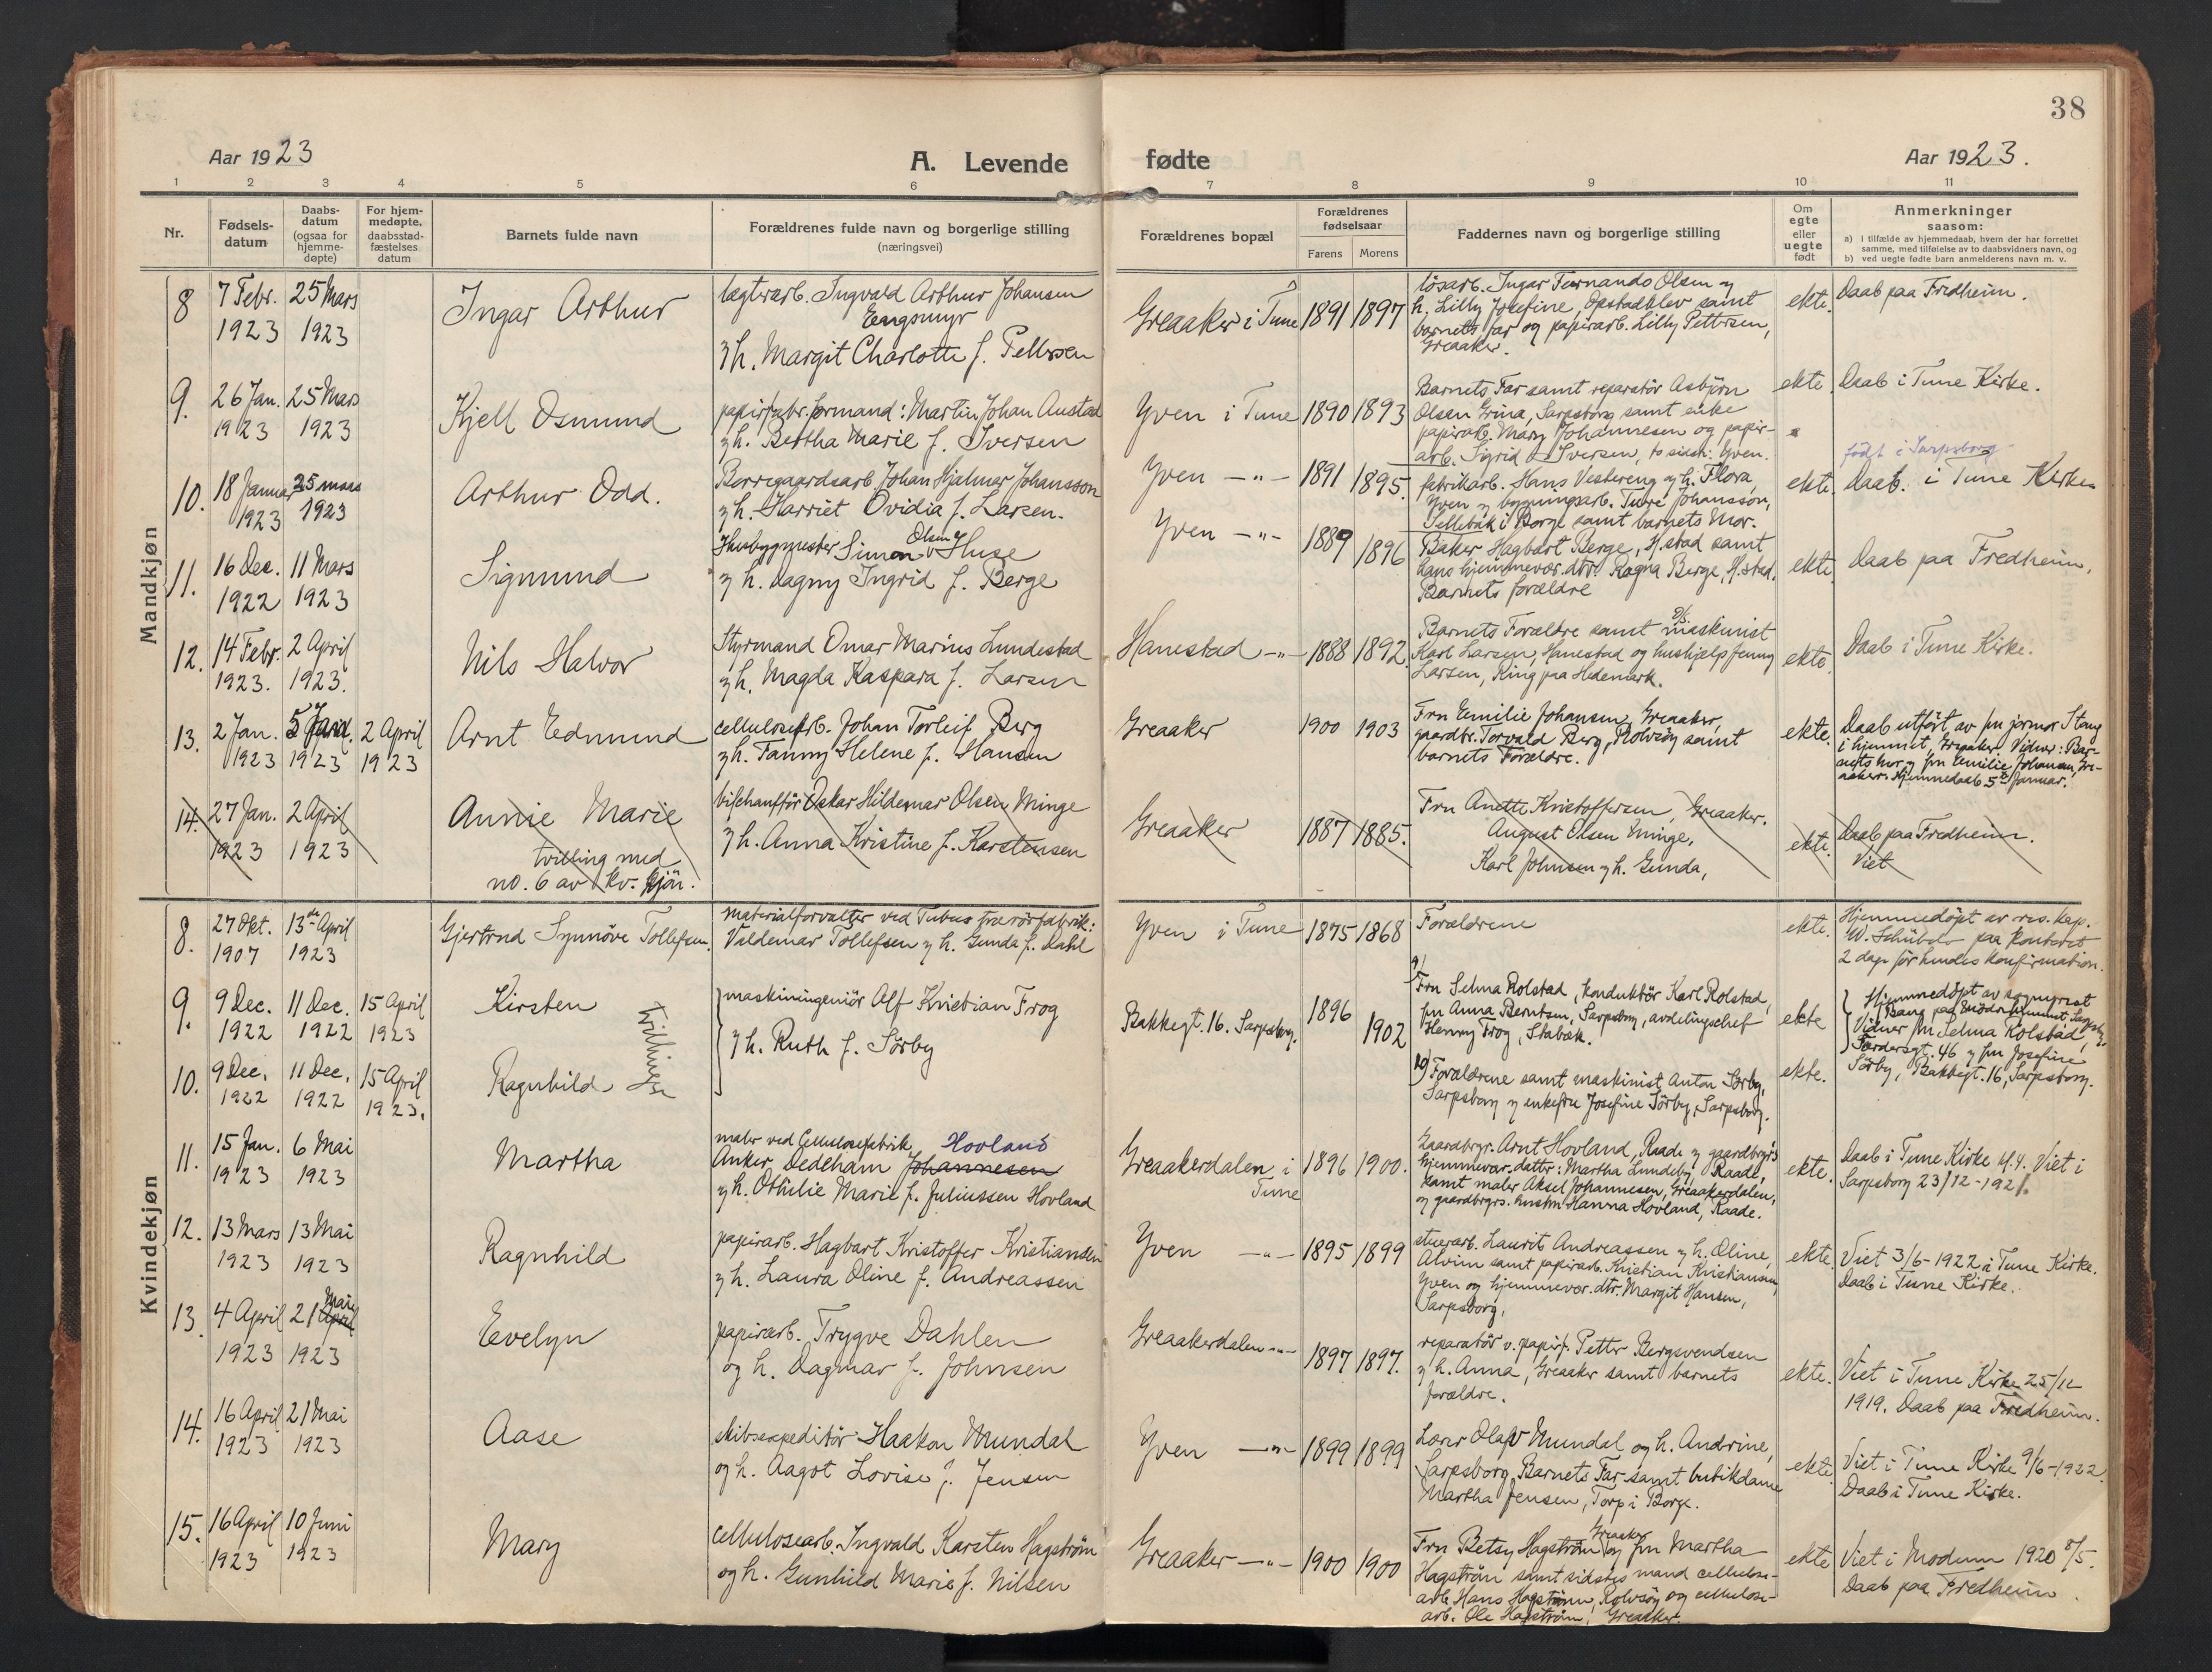 38
Aar 1923
A. Levende fødte
Aar 1923.
1 2 3 4 5 6 7 8 9 10 11
Nr.
Fødsels-
datum
Daabs-
datum
(ogsaa for
hjemme-
døpte)
For hjem-
medøpte,
daabsstad-
fæstelses
datum
Barnets fulde navn
Forældrenes fulde navn og borgerlige stilling
(næringsvei)
Forældrenes bopæl
Forældrenes
fødselsaar
Farens Morens
Faddernes navn og borgerlige stilling
Om
egte
eller
uegte
født
Anmerkninger
saasom:
a) I tilfælde av hjemmedaab, hvem der har forrettet
samme, med tilføielse av to daabsvidners navn, og
b) ved uegte fødte barn anmelderens navn m. v.
Mandkjøn
8 7 Febr. 1923
25 Mars 1923
Ingar Arthur
lægterarb. Ingvald Arthur Johansen
Engsmyr
og h. Margit Charlotte f. Pettersen
Greaaker i Tune
1891 1897
løsarb. Ingar Fernando Olsen og
h. Lilly Josefine, Opstadelev samt
barnets far og papirarb. Lilly Pettersen,
Greaaker.
ekte.
Daab paa Fredheim.
9. 26 Jan. 1923
25 Mars 1923
Kjell Osmund
papirfabr. formand: Martin Johan Austad
og h. Bertha Marie f. Iversen
Yven i Tune
1890 1893
Barnets Far samt reparatör Asbjörn
Olsen Grina, Sarpsborg samt enke
papirarb. Mary Johannesen og papir-
arb. Sigrid Iversen, to sidste: Yven.
ekte
Daab i Tune Kirke.
10. 18 Januar 1923
25 mars 1923
Arthur Odd.
Borregaardsarb. Johan Hjalmar Johansson
og h. Harriet Ovidia f. Larsen.
Yven -"-
1891 1895.
fabrikarb. Hans Vestereng og h. Flora,
Yven og bygningsarb. Ture Johansson,
Sellebak i Borge samt barnets Mor.
ekte.
født i Sarpsborg
Daab. i Tune Kirke.
11. 16 Dec. 1922
11 Mars 1923
Sigmund
Husbygmester Simon Olsen Huse
og h. Dagny Ingrid f. Berge
Yven -"-
1889 1896
Baker Hagbart Berge, H.stad samt
hans hjemmevær. dtr. Ragna Berge, H.stad.
Barnets forældre
ekte
Daab paa Fredheim.
12. 14 Febr. 1923.
2 April 1923.
Nils Halvor
Styrmand Omar Marius Lundestad
og h. Magda Kaspara f. Larsen
Hanestad -"-
1888 1892.
Barnets Forældre samt maskinist
Karl Larsen, Hanestad og hushjælp Jenny
Larsen, Ring paa Hedemark.
ekte
Daab i Tune Kirke.
13. 2 Jan. 1923
5 Jan. 1923
2 April 1923
Arnt Edmund
cellulosearb. Johan Torleif Berg
og h. Fanny Helene f. Hansen
Greaaker
1900 1903
Fru Emilie Johansen, Greaaker,
gaardbr. Torvald Berg, Rolvsöy samt
barnets Forældre.
ekte.
Daab utført av fru jormor Stang
i hjemmet, Greaaker. Vidner: Bar-
nets mor og fru Emilie Johansen, Gre-
aaker. Hjemmedaab 5te Januar.
14. 27 Jan. 1923
2 April 1923
Annie Marie
tvilling med
no. 6 av kv. kjön.
bilchauffør Oskar Hildemar Olsen Minge
og h. Anna Kristine f. Karstensen
Greaaker
1887 1885.
Fru Anette Kristoffersen, Greaaker.
August Olsen Minge,
Karl Johnsen og h. Gunda,
ekte.
Daab paa Fredheim.
Viet
Kvindekjøn
8. 27 Okt. 1907
13de April 1923
Gjertrud Synnöve Tollefsen.
Materialforvalter ved Tubus trærörfabrik:
Valdemar Tollefsen og h. Gunda f. Dahl
Yven i Tune
1875 1868
Forældrene
ekte.
Hjemmedöpt av res. kap.
W. Schübeler paa kontoret
2 dage för hendes konfirmation.
9. 9 Dec. 1922
11 Dec. 1922
15 April 1923
Kirsten
tvillinger
maskiningeniör Alf Kristian Frog
og h. Ruth f. Sörby
Bakkegt. 16. Sarpsborg.
1896 1902
9) Fru Selma Rolstad, konduktör Karl Rolstad,
fru Anna Berntsen, Sarpsborg, avdelingschef
Henry Frog, Stabæk.
ekte
Hjemmedöpt av sogneprest
Bang paa Mödrehjemmet Sarpsbg.
Vidner fru Selma Rolstad,
Færdersgt. 46 og fru Josefine
Sörby, Bakkegt. 16, Sarpsborg.
10. 9 Dec. 1922
11 Dec. 1922
15 April 1923.
Ragnhild
10) Forældrene samt maskinist Anton Sörby,
Sarpsborg og enkefru Josefine Sörby, Sarpsborg.
ekte.
11. 15 Jan. 1923
6 Mai 1923
Martha
maler ved Cellulosefabrik Hovland
Anker Dedeham Johannesen
og h. Othilie Marie f. Juliussen Hovland
Greaakerdalen i
Tune
1896 1900.
Gaardbrgr. Arnt Hovland, Raade og gaardbrgr's
hjemmevær. datter: Martha Lundeby, Raade,
samt maler Aksel Johannesen, Greaakerdalen,
og gaardbrgrs. hustru Hanna Hovland, Raade.
ekte.
Daab i Tune Kirke U.Y. Viet i
Sarpsborg 23/12-1921.
12. 13 Mars 1923
13 Mai 1923
Ragnhild
papirarb. Hagbart Kristoffer Kristiansen
og h. Laura Oline f. Andreassen
Yven -"-
1895 1899
stuerarb. Laurits Andreassen og h. Oline,
Alvim samt papirarb. Kristian Kristiansen,
Yven og hjemmevær. dtr. Margit Hansen,
Sarpsborg.
ekte.
Viet 3/6-1922 i Tune Kirke.
Daab i Tune Kirke.
13. 4 April 1923
21 April Mai 1923
Evelyn
papirarb. Trygve Dahlen
og h. Dagmar f. Johnsen
Greaakerdalen -"-
1897 1897.
reparatör v. papirf. Petter Bergsvendsen
og h. Anna, Greaaker samt barnets
forældre.
ekte.
Viet i Tune Kirke 25/12
1919. Daab paa Fredheim.
14. 16 April 1923
21 Mai 1923
Aase
Skibsexpeditör Haakon Mundal
og h. Aagot Lovise f. Jensen
Yven -"-
1899 1899
Lærer Olaf Mundal og h. Andrine,
Sarpsborg, Barnets Far samt butikdame
Martha Jensen, Torp i Borge.
ekte
Viet i Tune Kirke 9/6-1922.
Daab i Tune Kirke.
15. 16 April 1923
10 Juni 1923
Mary
cellulosearb. Ingvald Karsten Hagström
og h. Gunhild Marie f. Nilsen
Greaaker -"-
1900 1900
Fru Betsy Hagström Greaaker og fru Martha
Hagström samt sidstes mand cellulose-
arb. Hans Hagström, Rolvsöy og cellulose-
arb. Ole Hagström, Greaaker.
ekte
Viet i Modum 1920 8/5.
Daab paa Fredheim.